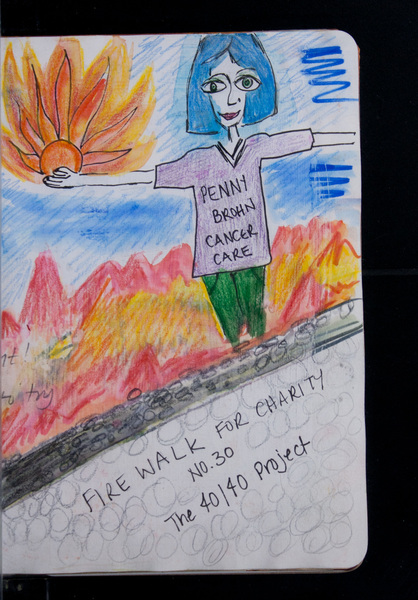 PENNY
BROHN
CANCER
CARE
try
FIRE WALK FOR CHARITY
NO.30
The 40/40 Project